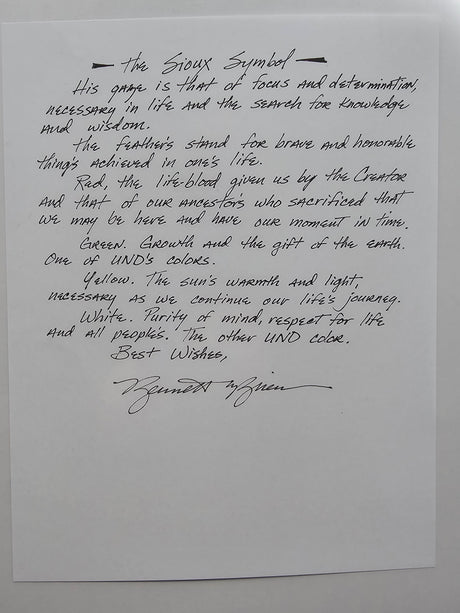 — The Sioux Symbol —
His game is that of focus and determination,
necessary in life and the search for knowledge
and wisdom.
The feather's stand for brave and honorable
thing's achieved in one's life.
Red, the life-blood given us by the Creator
and that of our ancestor's who sacrificed that
we may be here and have our moment in time.
Green. Growth and the gift of the earth.
One of UND's colors.
Yellow. The sun's warmth and light,
necessary as we continue our life's journey.
White. Purity of mind, respect for life
and all people's. The other UND color.
Best Wishes,
Bennett Brien